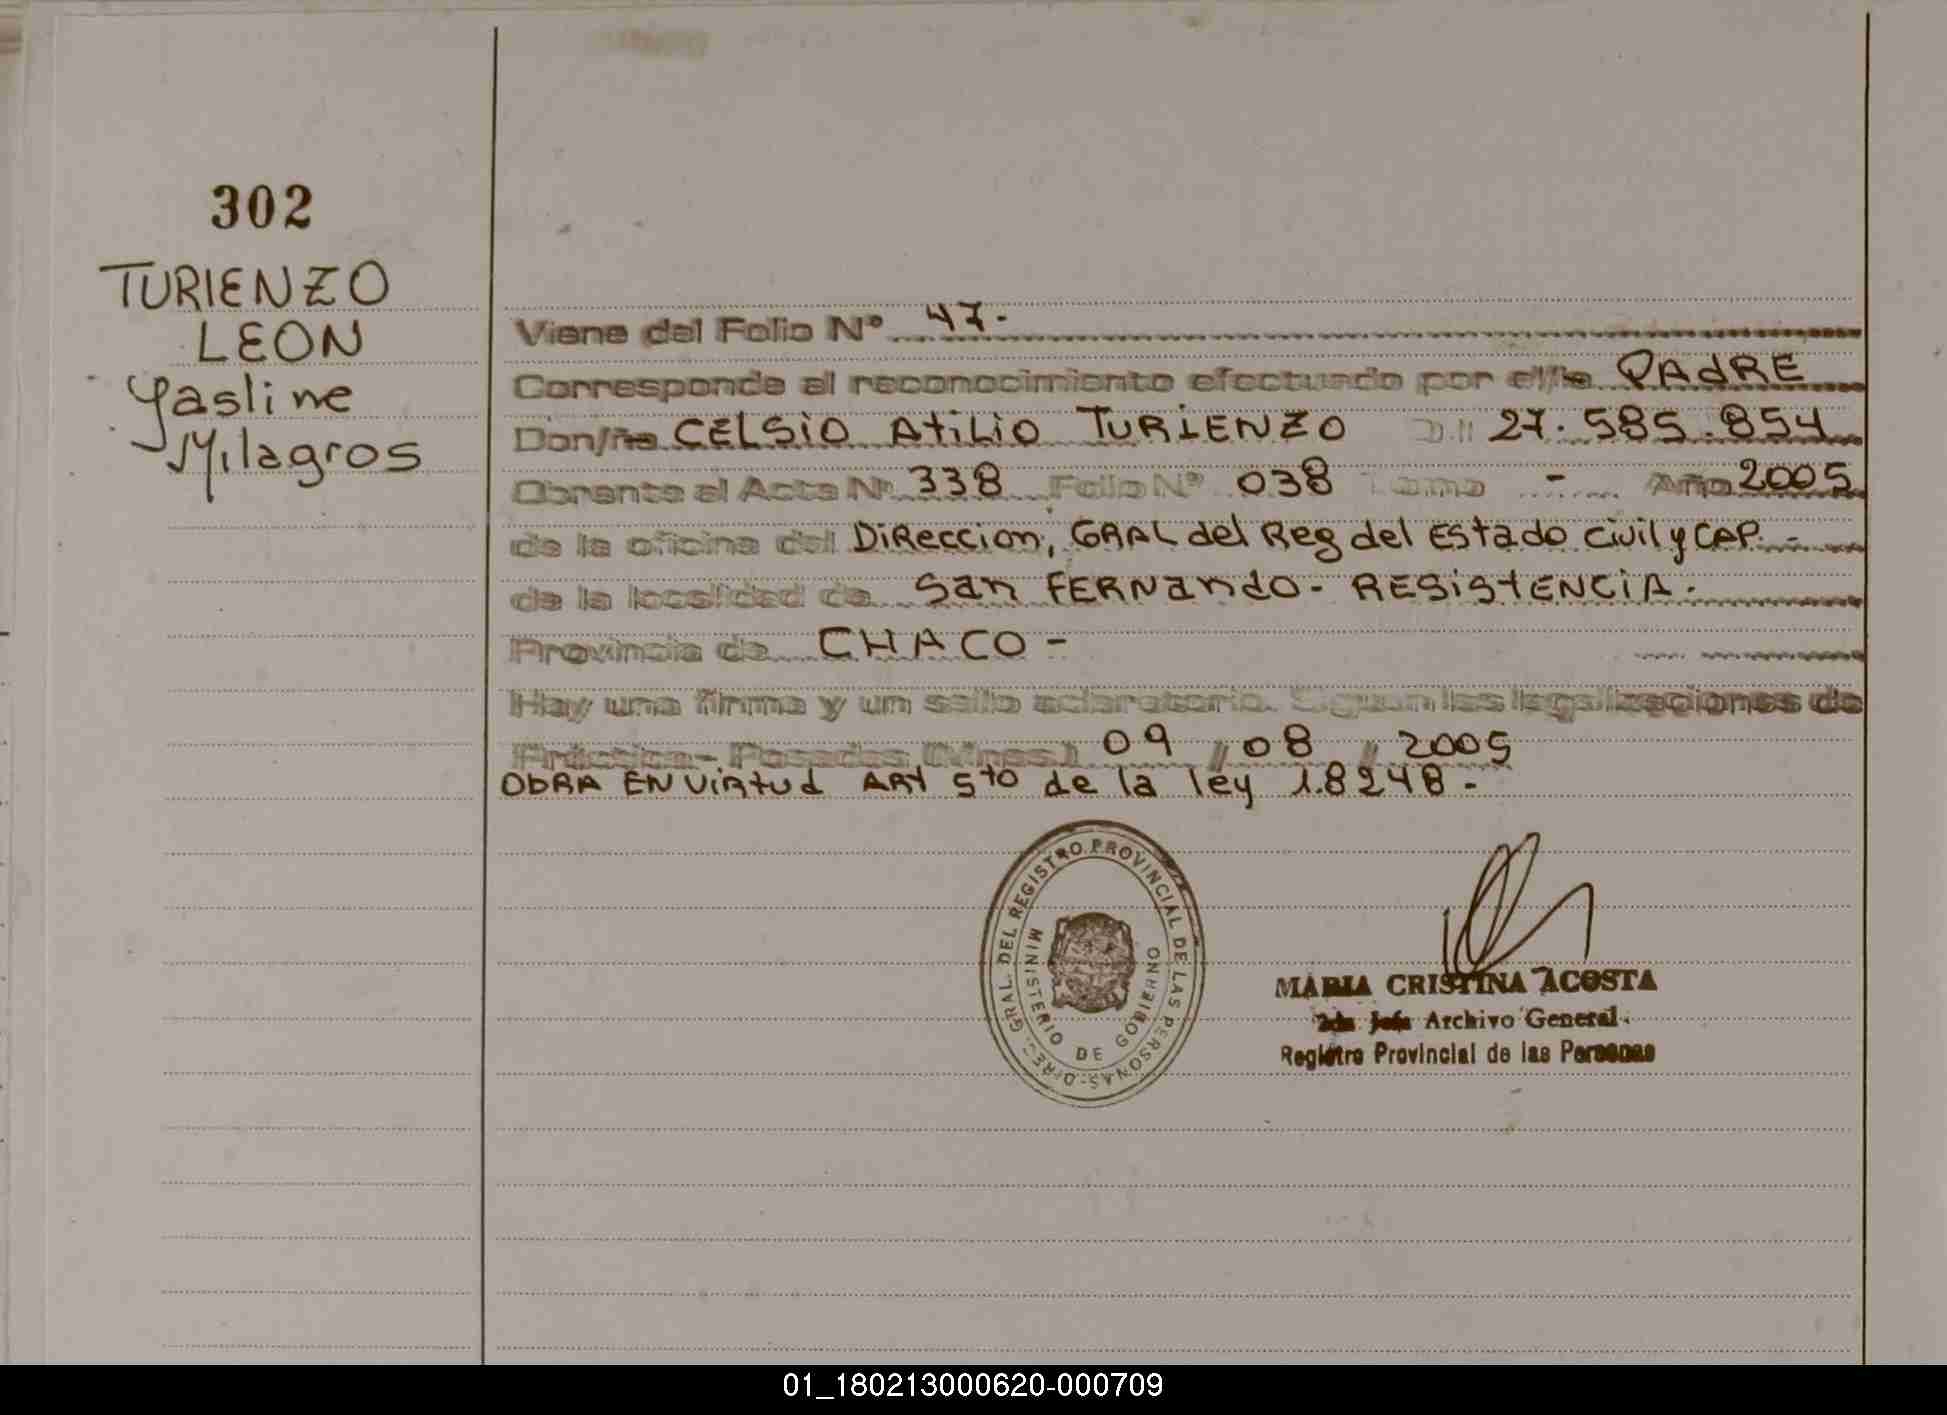 302
TURIENZO
LEON
Yasline
Milagros
Viene del Folio Nº 47.
Corresponde al reconocimiento efectuado por el/la PAdRE
Don/ña CELSiO AtiLiO TURiENZO D.I 27.585.854
Obrante al Acta Nº 338 Folio Nº 038 Tomo - Año 2005
de la oficina del DiReccion, GRAL del Reg del EStado civil y CAP. -
de la localidad de San FERNando - RESiStENCiA.
Provincia de CHACO -
Hay una firma y un sello aclaratorio. Siguen las legalizaciones de
Práctica- Posadas (Mnes.) 09 / 08 / 2005
ObRA EN Virtud ARt 5to de la ley 18248.-
DIREC. GRAL. DEL REGISTRO PROVINCIAL DE LAS PERSONAS-
MINISTERIO DE GOBIERNO
MARIA CRISTINA ACOSTA
2da Jefa Archivo General
Registro Provincial de las Personas
01_180213000620-000709